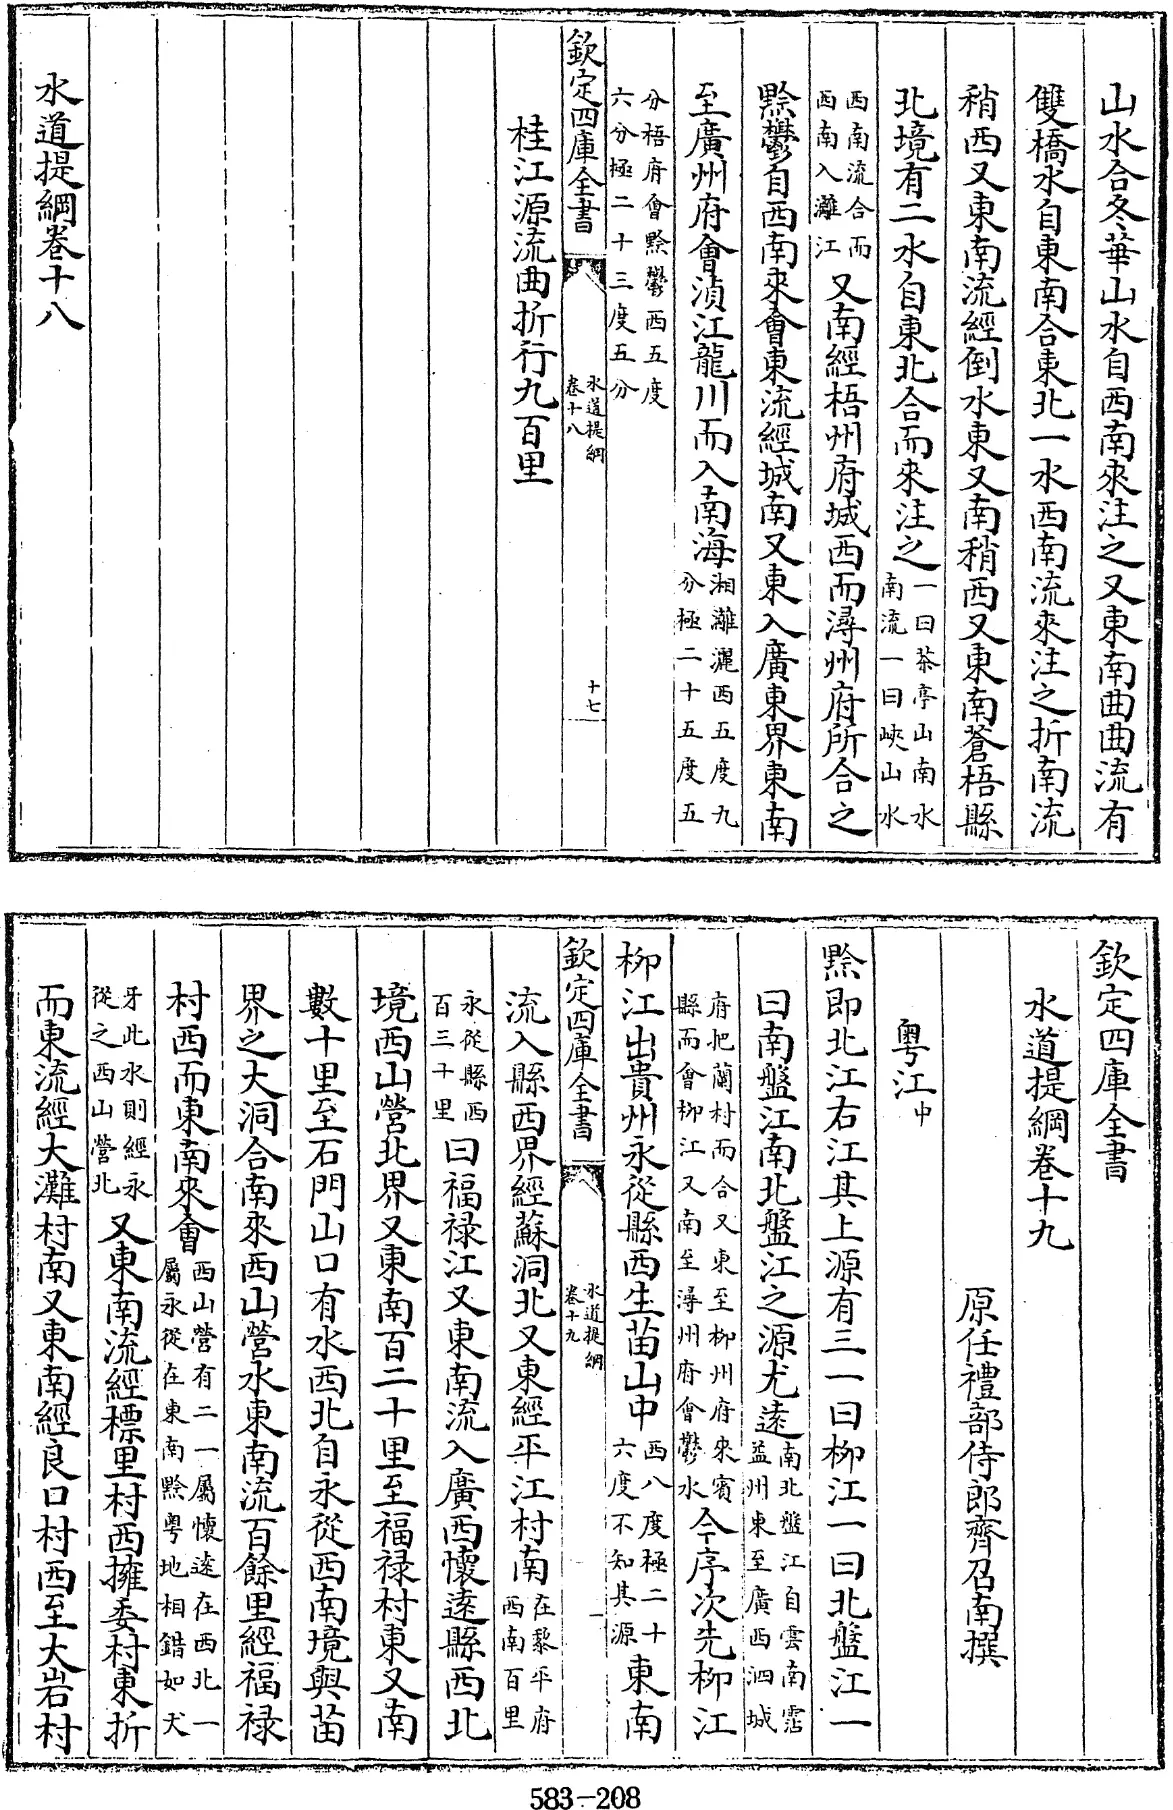 山水合冬華山水自西南來注之又東南曲曲流有
雙橋水自東南合東北一水西南流來注之折南流
稍西又東南流經倒水東又南稍西又東南蒼梧縣
北境有二水自東北合而來注之一曰茶亭山南水南流一曰峽山水
西南流合而西南入灕江又南經梧州府城西而潯州府所合之
黔鬱自西南來會東流經城南又東入廣東界東南
至廣州府會湞江龍川而入南海湘灕灑西五度九分極二十五度五
分梧府會黔鬱西五度六分極二十三度五分
欽定四庫全書 水道提綱卷十八 十七
桂江源流曲折行九百里
水道提綱卷十八
欽定四庫全書
水道提綱卷十九
原任禮部侍郎齊召南撰
粵江中
黔即北江右江其上源有三一曰柳江一曰北盤江一
曰南盤江南北盤江之源尤遠南北盤江自雲南霑益州東至廣西泗城
府把蘭村而合又東至柳州府來賓縣而會柳江又南至潯州府會鬱水今序次先柳江
柳江出貴州永從縣西生苗山中西八度極二十六度不知其源東南
欽定四庫全書 水道提綱卷十九 一
流入縣西界經蘇洞北又東經平江村南在黎平府西南百里
永從縣西百三十里曰福祿江又東南流入廣西懷遠縣西北
境西山營北界又東南百二十里至福祿村東又南
數十里至石門山口有水西北自永從西南境與苗
界之大洞合南來西山營水東南流百餘里經福祿
村西而東南來會西山營有二一屬懷遠在西北一屬永從在東南黔粵地相錯如犬
牙此水則經永從之西山營北又東南流經標里村西擁委村東折
而東流經大灘村南又東南經良口村西至大岩村
583-208